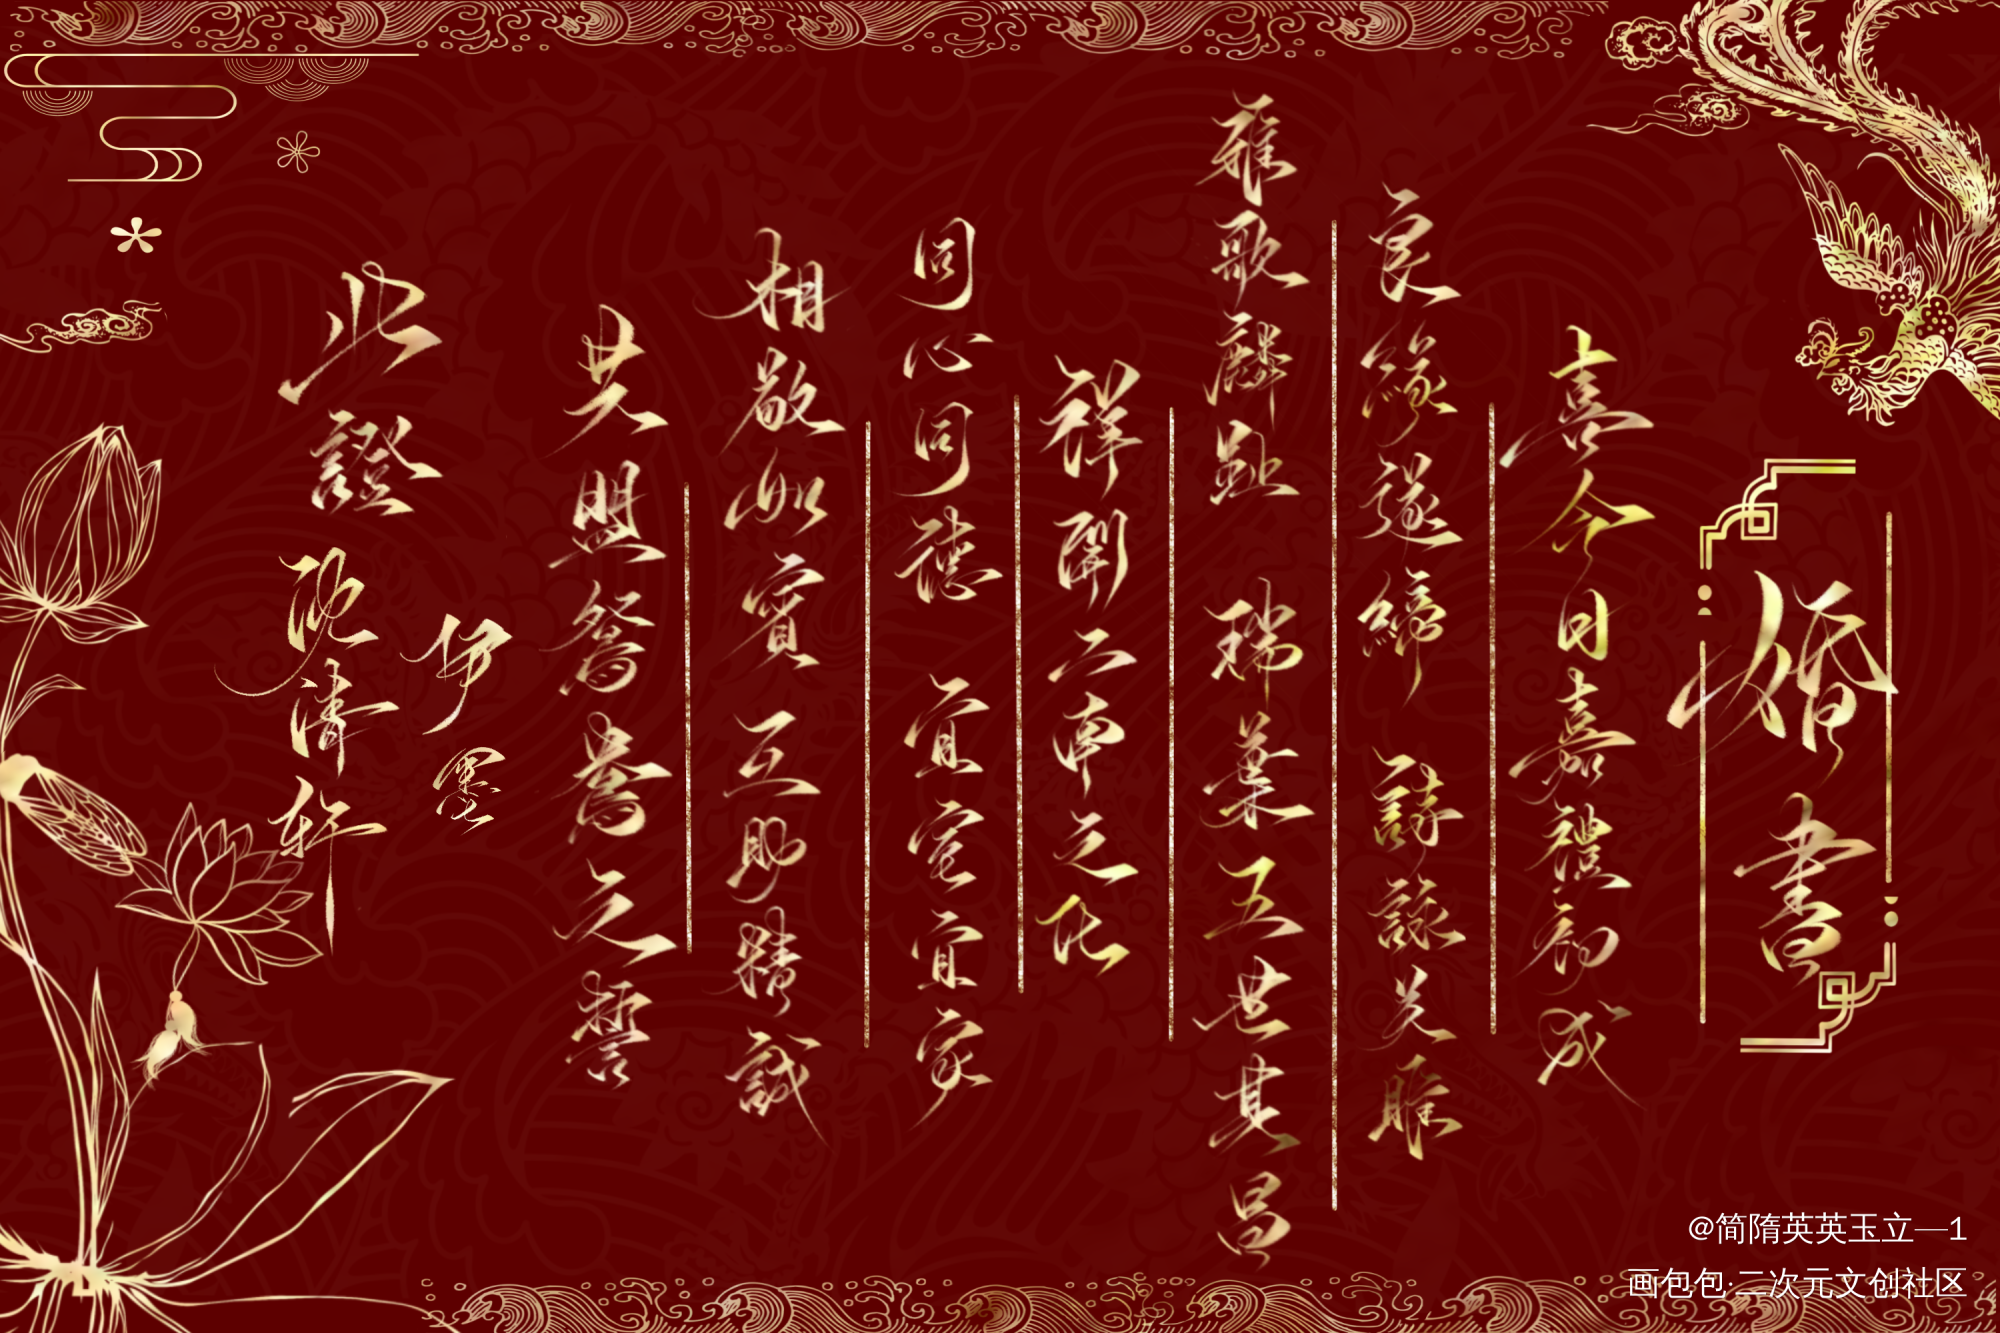 婚書
喜今日嘉禮初成
良緣遂締 詩詠關雎
雅歌麟趾 瑞葉五世其昌
祥開二南之化
同心同德 宜室宜家
相敬如賓 互助精誠
共盟鴛鴦之誓
此證
伊墨
沈清軒
@简隋英英玉立—1
画包包·二次元文创社区